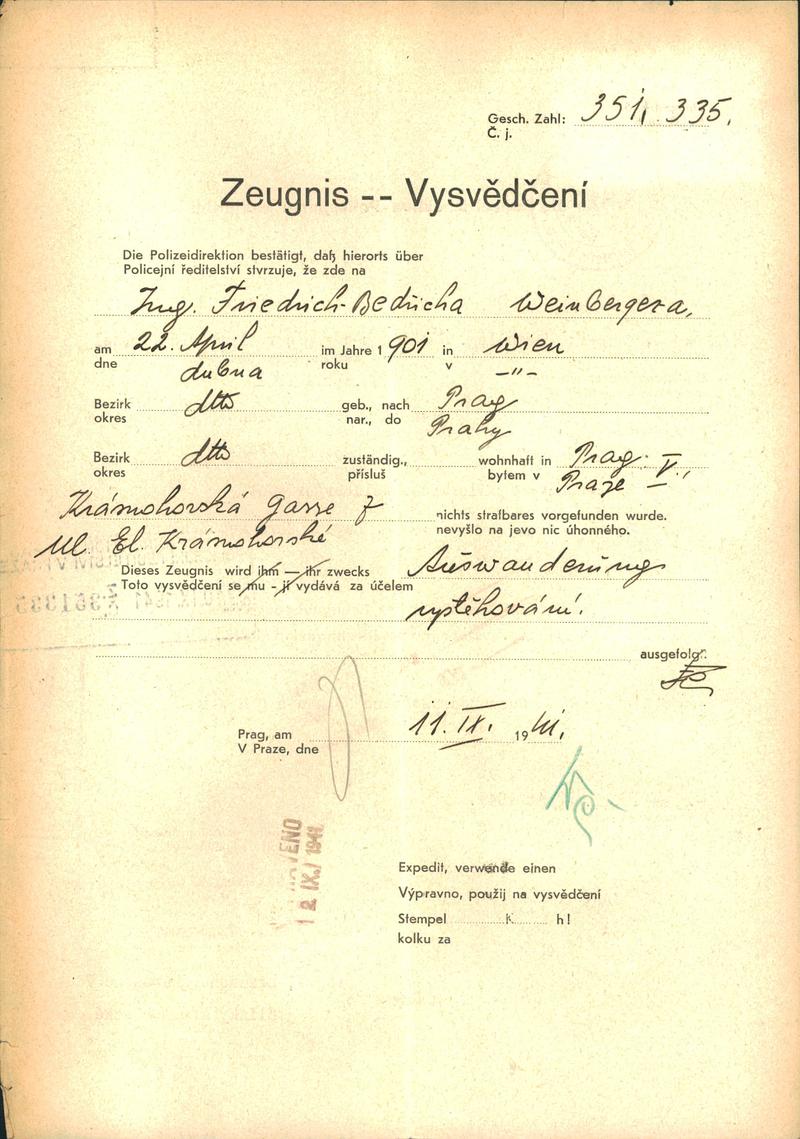 Gesch. Zahl: 351.335.
Č. j.
Zeugnis -- Vysvědčení
Die Polizeidirektion bestätigt, daß hierorts über
Policejní ředitelství stvrzuje, že zde na
Ing. Friedrich-Bedřicha Weinbergera,
am 22. April im Jahre 1901 in Wien
dne dubna roku v -"-
Bezirk dtto geb., nach Prag
okres nar., do Prahy
Bezirk dtto zuständig., wohnhaft in Prag V.,
okres přísluš bytem v Praze
Krásnohorská gasse 7 nichts strafbares vorgefunden wurde.
nevyšlo na jevo nic úhonného.
Ul. El. Krásnohorské
Dieses Zeugnis wird ihm — ihr zwecks Auswanderung
Toto vysvědčení se mu - jí vydává za účelem
vystěhování.
ausgefolgt.
Prag, am 11. IX. 1941.
V Praze, dne
12 IX. 1941
Expedit, verwende einen
Výpravno, použij na vysvědčení
Stempel K h!
kolku za